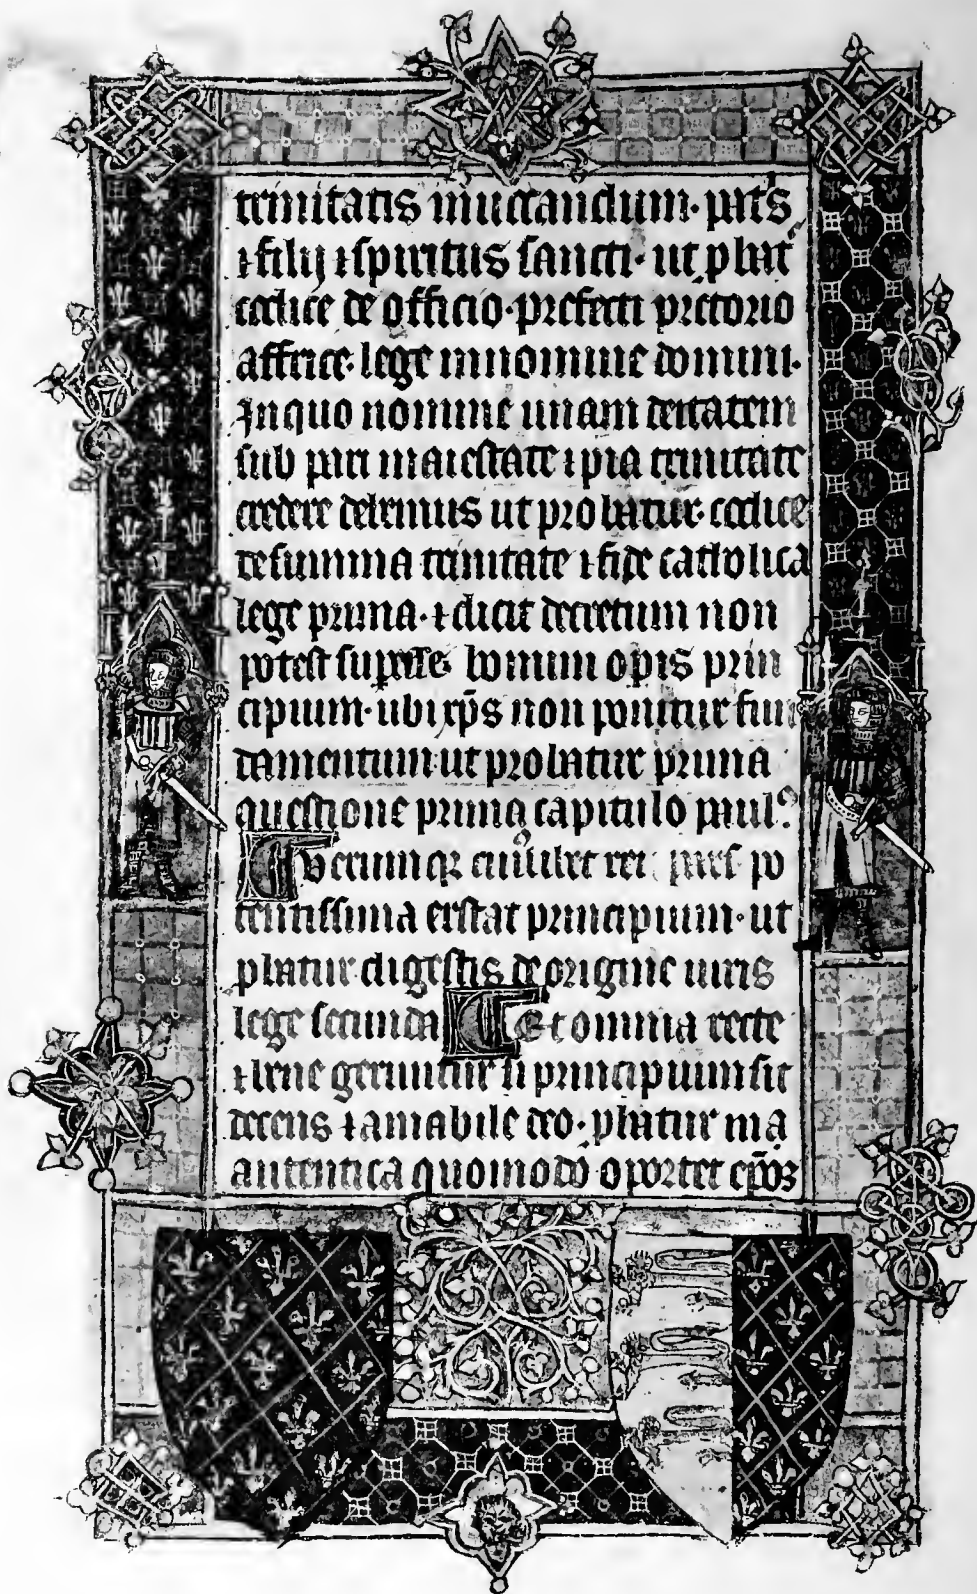 trinitatis inuocandum· pat's
⁊ filij ⁊ spiritus sancti· ut pbat'
codice de officio· prefecti pretorio
affrice· lege in nomine domini·
In quo nomine unam deitatem
sub pari maiestate ⁊ pia trinitate
credere debemus ut probatur· codice
de summa trinitate ⁊ fide catholica
lege prima· ⁊ dicit decretum non
potest bonum opis prin
cipium· ubi xp̄s non ponitur fun
damentum· ut probatur prima
questione prima capitulo paul9
verumq; cuiuslibet rei pars po
tentissima est principium· ut
pbatur digestis de origine iuris
lege secunda Et omnia recte
⁊ bene geruntur si principium fit
decens ⁊ amabile deo· pbatur in
autentica quomodo oportet ep̄os